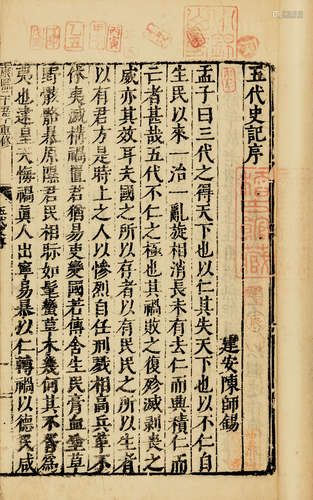 五代史記序
建安陳師錫
孟子曰三代之得天下也以仁其失天下也以不仁自
生民以來一治一亂旋相消長未有去仁而興積仁而
亡者甚哉五代不仁之極也其禍敗之復殄滅剥喪之
威亦其效耳夫國之所以存者以有民民之所以生者
以有君方是時上之人以慘烈自任刑戮相高兵革不
休夷滅構禍置君猶易吏變國若傳舍生民膏血塗草
野骸骼暴原隰君民相眎如髦蠻草木幾何其不胥為
夷也逮皇天悔禍真人出寧易暴以仁轉禍以德民咸